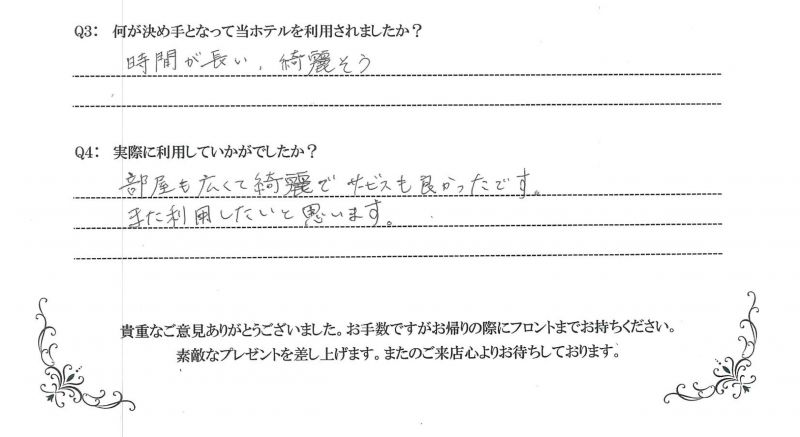 Q3： 何が決め手となって当ホテルを利用されましたか？
時間が長い、綺麗そう
Q4： 実際に利用していかがでしたか？
部屋も広くて綺麗で サービスも良かったです。
また利用したいと思います。
貴重なご意見ありがとうございました。お手数ですがお帰りの際にフロントまでお持ちください。
素敵なプレゼントを差し上げます。またのご来店心よりお待ちしております。